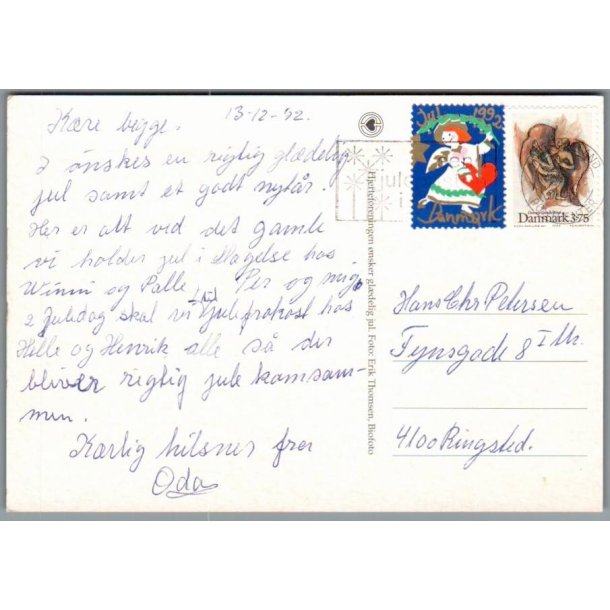 13-12-92.
Kære begge.
I ønskes en rigtig glædelig
jul samt et godt nytår.
Her er alt ved det gamle
vi holder jul i Slagelse hos
Winni og Palle. Per og mig.
2 Juledag skal vi til Julefrokost hos
Helle og Henrik alle så der
bliver rigtig jule komsam-
men.
Kærlig hilsner fra
Oda
Hjerteforeningen ønsker glædelig jul. Foto: Erik Thomsen, Biofoto
Jul 1992
Danmark
Danmark 3.75
jule
Hans Chr Petersen
Fynsgade 8 I Th.
4100 Ringsted.